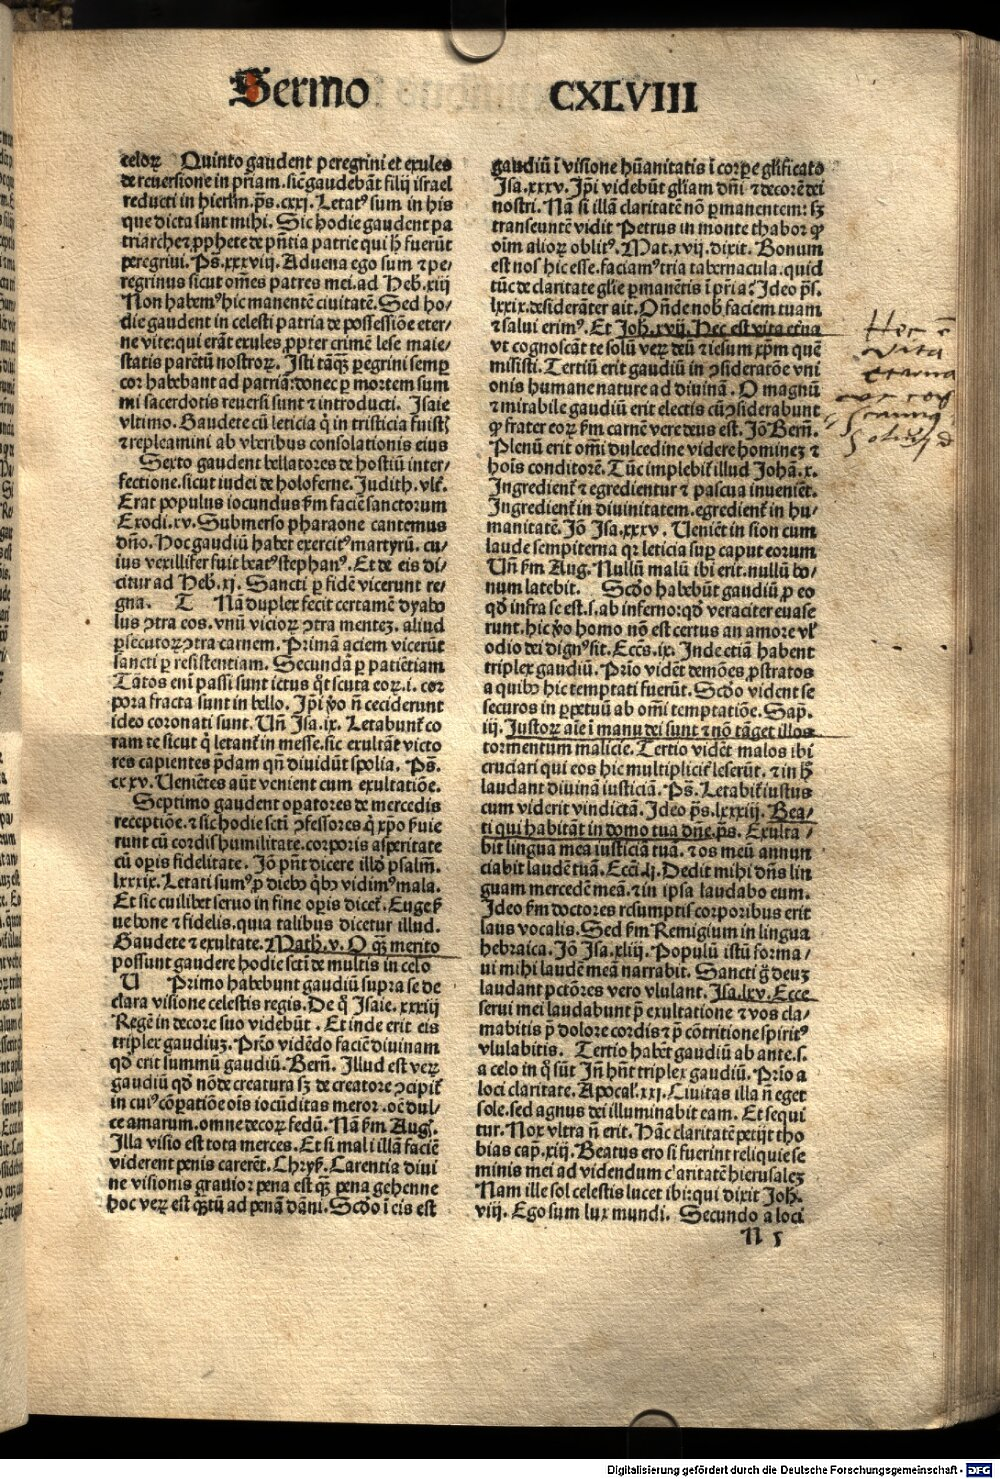 Sermo CXLVIII
celoꝝ Quinto gaudent peregrini et exules
de reuersione in pr̃iam. sic̃ gaudebãt filij israel
reducti in hierl̃m. p̃s. cxxi. Letatꝰ sum in his
que dicta sunt mihi. Sic hodie gaudent pa
triarche ⁊ ꝓphete de p̃ñtia patrie qui h̃ fuerũt
peregrini. Ps̃. xxxviij. Aduena ego sum ⁊ pe⸗
regrinus sicut om̃es patres mei. ad Heb. xiij
Non habemꝰ hic manentẽ ciuitatẽ. Sed ho⸗
die gaudent in celesti patria de possessiõe eter⸗
ne vite: qui erãt exules ꝓpter crimẽ lese maie⸗
statis parẽtũ nostroꝝ. Isti tãqꝫ ꝑegrini semꝑ
cor habebant ad patriã: donec ꝑ mortem sum
mi sacerdotis reuersi sunt ⁊ introducti. Isaie
vltimo. Gaudete cũ leticia q̃ in tristicia fuist̃
⁊ repleamini ab vberibus consolationis eius
Sexto gaudent bellatores de hostiũ inter⸗
fectione. sicut iudei de holoferne. Judith. vlt̃.
Erat populus iocundus ẞm faciẽ sanctorum
Exodi. xv. Submerso pharaone cantemus
dño. Hoc gaudiũ habet exercitꝰ martyrũ. cu⸗
ius vexillifer fuit beatꝰ stephanꝰ. Et de eis di⸗
citur ad Heb. xi. Sancti ꝑ fidẽ vicerunt re⸗
gna. T Nã duplex fecit certamẽ dyabo
lus ꝯtra eos. vnũ vicioꝝ ꝯtra mentez. aliud
ꝑsecutoꝝ ꝯtra carnem. Primã aciem vicerũt
sancti ꝑ resistentiam. Secundã ꝑ patiẽtiam
Tãtos eni passi sunt ictus qͦt scuta eoꝝ. i. cor
pora fracta sunt in bello. Ip̃i v̊o ñ ceciderunt
ideo coronati sunt. Uñ Isa. ix. Letabunt̃ co
ram te sicut q̇ letant̃ in messe. sic exultãt victo
res capientes p̃dam qñ diuidũt spolia. Ps̃.
cxxv. Ueniẽtes aũt venient cum exultatiõe.
Septimo gaudent oꝑatores de mercedis
receptiõe. ⁊ sic hodie sc̃ti ꝯfessores q̇ xp̃o ẞuie
runt cũ cordis humilitate. corporis asperitate
cũ oꝑis fidelitate. Jõ pñt dicere illd̊ psalm̃.
lxxxix. Letati sumꝰ ꝓ dieb⁹ q̇b⁹ vidimꝰ mala.
Et sic cuilibet seruo in fine oꝑis dicet̃. Euge ẞ
ue bone ⁊ fidelis. quia talibus dicetur illud.
Gaudete ⁊ exultate. Math̃. v. O qꝫ merito
possunt gaudere hodie sc̃ti de multis in celo
U Primo habebunt gaudiũ supra se de
clara visione celestis regis. De q̊ Isaie. xxxiij
Regẽ in decore suo videbũt. Et inde erit eis
triplex gaudiuz. Pr̃io vidẽdo faciẽ diuinam
qd̊ erit summũ gaudiũ. Bern̄. Illud est veꝝ
gaudiũ qd̊ nõ de creatura sꝫ de creatore ꝯcipit̃
in cuiꝰ cõꝑatiõe oĩs iocũditas meror. oẽ dul⸗
ce amarum. omne decoꝝ fedũ. Nã ẞm Aug̃.
Illa visio est tota merces. Et si mali illã faciẽ
viderent penis carerẽt. Chrys̃. Carentia diui
ne visionis grauior pena est qꝫ pena gehenne
hoc veꝝ est q̃ꝫtũ ad penã dãni. Scd̊o ĩ eis est
gaudiũ ĩ visione hũanitatis ĩ corꝑe gl̃ificato
Isa. xxxv. Ip̃i videbũt gl̃iam dñi ⁊ decorẽ dei
nostri. Nã si illã claritatẽ nõ ꝑmanentem: sꝫ
transeuntẽ vidit Petrus in monte thabor ꝙ
oĩm alioꝝ oblitꝰ. Mat. xvij. dixit. Bonum
est nos hic esse. faciamꝰ tria tabernacula. quid
tũc de claritate gl̃ie ꝑmanẽtis ĩ pr̃ia? Ideo p̃s.
lxxix. desiderãter ait. Oñde nob̃ faciem tuam
⁊ salui erimꝰ. Et Joh̃. xvij. Hec est vita et̃na
vt cognoscãt te solũ veꝝ deũ ⁊ iesum xp̃m quẽ
misisti. Tertiũ erit gaudiũ in ꝯsideratõe vni
onis humane nature ad diuinã. O magnũ
⁊ mirabile gaudiũ erit electis cũ ꝯsiderabunt
ꝙ frater eoꝝ ẞm carnẽ vere deus est. Jõ Bern̄.
Plenũ erit om̃i dulcedine videre hominez ⁊
hoĩs conditorẽ. Tũc implebit̃ illud Johã. x.
Ingredient̃ ⁊ egredientur ⁊ pascua inueniẽt.
Ingredient̃ in diuinitatem. egredient̃ in hu⸗
manitatẽ. Jõ Isa. xxxv. Ueniẽt in sion cum
laude sempiterna qꝛ leticia suꝑ caput eorum
Uñ ẞm Aug. Nullũ malũ ibi erit. nullũ bo⸗
num latebit. Scd̊o habebũt gaudiũ ꝓ eo
qd̊ infra se est. s. ab inferno: qd̊ veraciter euase
runt. hic v̊o homo nõ est certus an amore vl̃
odio dei dignꝰ sit. Ecc̃s. ix. Inde etiã habent
triplex gaudiũ. Pr̃io vidẽt demões ꝓstratos
a quib⁹ hic temptati fuerũt. Scd̊o vident se
securos in ꝑpetuũ ab om̃i temptatiõe. Sap̃.
iij. Iustoꝝ aĩe ĩ manu dei sunt ⁊ nõ tãget illos
tormentum malicie. Tertio vidẽt malos ibi
cruciari qui eos hic multiplicit̃ leserũt. ⁊ in h̃
laudant diuinã iusticiã. Ps̃. Letabit̃ iustus
cum viderit vindictã. Ideo p̃s. lxxxiij. Bea⸗
ti qui habitãt in domo tua dñe. p̃s. Exulta⸗
bit lingua mea iusticiã tuã. ⁊ os meũ annun
ciabit laudẽ tuã. Ecc̃i. lj. Dedit mihi dñs lin
guam mercedẽ meã. ⁊ in ipsa laudabo eum.
Ideo ẞm doctores resumptis corporibus erit
laus vocalis. Sed ẞm Remigium in lingua
hebraica. Jõ Isa. xliij. Populũ istũ forma⸗
ui mihi laudẽ meã narrabit. Sancti g̊ deuz
laudant pctõres vero vlulant. Isa. lxv. Ecce
serui mei laudabunt p̃ exultatione ⁊ vos cla⸗
mabitis p̃ dolore cordis ⁊ p̃ cõtritione spiritꝰ
vlulabitis. Tertio habẽt gaudiũ ab ante. s.
a celo in q̊ sũt Iñ hñt triplex gaudiũ. Pr̃io a
loci claritate. Apocal̃. xxi. Ciuitas illa ñ eget
sole. sed agnus dei illuminabit eam. Et sequi
tur. Nox vltra ñ erit. Hãc claritatẽ petijt tho
bias cap̃. xiij. Beatus ero si fuerint reliquie se
minis mei ad videndum claritatẽ hierusalez
Nam ille sol celestis lucet ibi: qui dixit Joh̃.
viij. Ego sum lux mundi. Secundo a loci
N 5
Hec ẽ
Vita
eterna
Digitalisierung gefördert durch die Deutsche Forschungsgemeinschaft - DFG